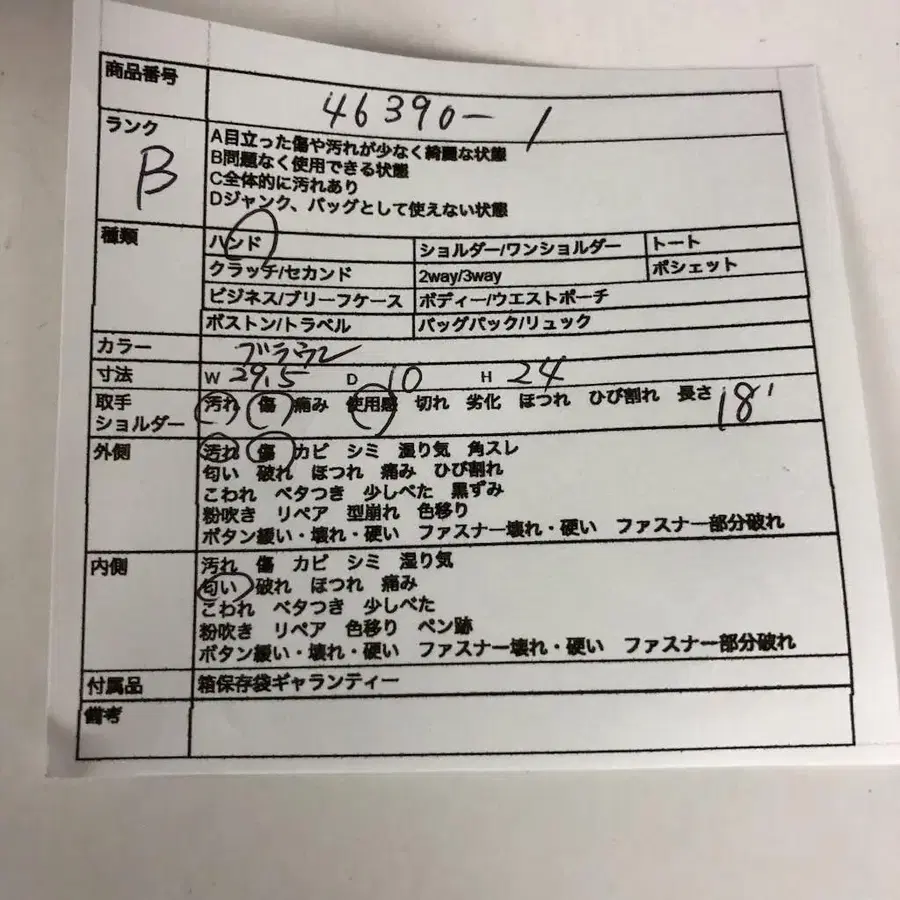 商品番号 46390-1
ランク B
A目立った傷や汚れが少なく綺麗な状態
B問題なく使用できる状態
C全体的に汚れあり
Dジャンク、バッグとして使えない状態
種類 ハンド ショルダー/ワンショルダー トート
クラッチ/セカンド 2way/3way ポシェット
ビジネス/ブリーフケース ボディー/ウエストポーチ
ボストン/トラベル バッグパック/リュック
カラー ブラウン
寸法 W 29.5 D 10 H 24
取手 汚れ 傷 痛み 使用感 切れ 劣化 ほつれ ひび割れ 長さ 18
ショルダー
外側 汚れ 傷 カビ シミ 湿り気 角スレ
匂い 破れ ほつれ 痛み ひび割れ
こわれ ベタつき 少しべた 黒ずみ
粉吹き リペア 型崩れ 色移り
ボタン緩い・壊れ・硬い ファスナー壊れ・硬い ファスナー部分破れ
内側 汚れ 傷 カビ シミ 湿り気
匂い 破れ ほつれ 痛み
こわれ ベタつき 少しべた
粉吹き リペア 色移り ペン跡
ボタン緩い・壊れ・硬い ファスナー壊れ・硬い ファスナー部分破れ
付属品 箱保存袋ギャランティー
備考